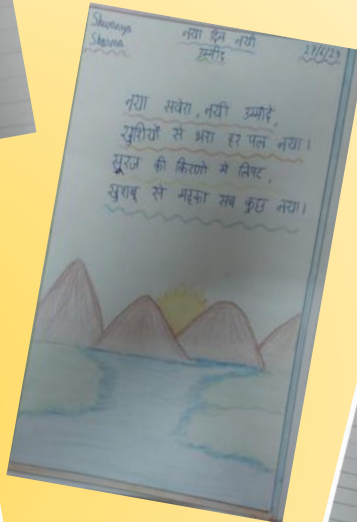 Shwanya
Sharma
नया दिन नयी
उम्मीद
नया सवेरा, नयी उम्मीदें,
खुशियों से भरा हर पल नया।
सूरज की किरणों में लिपट,
खुशबू से महका सब कुछ नया।